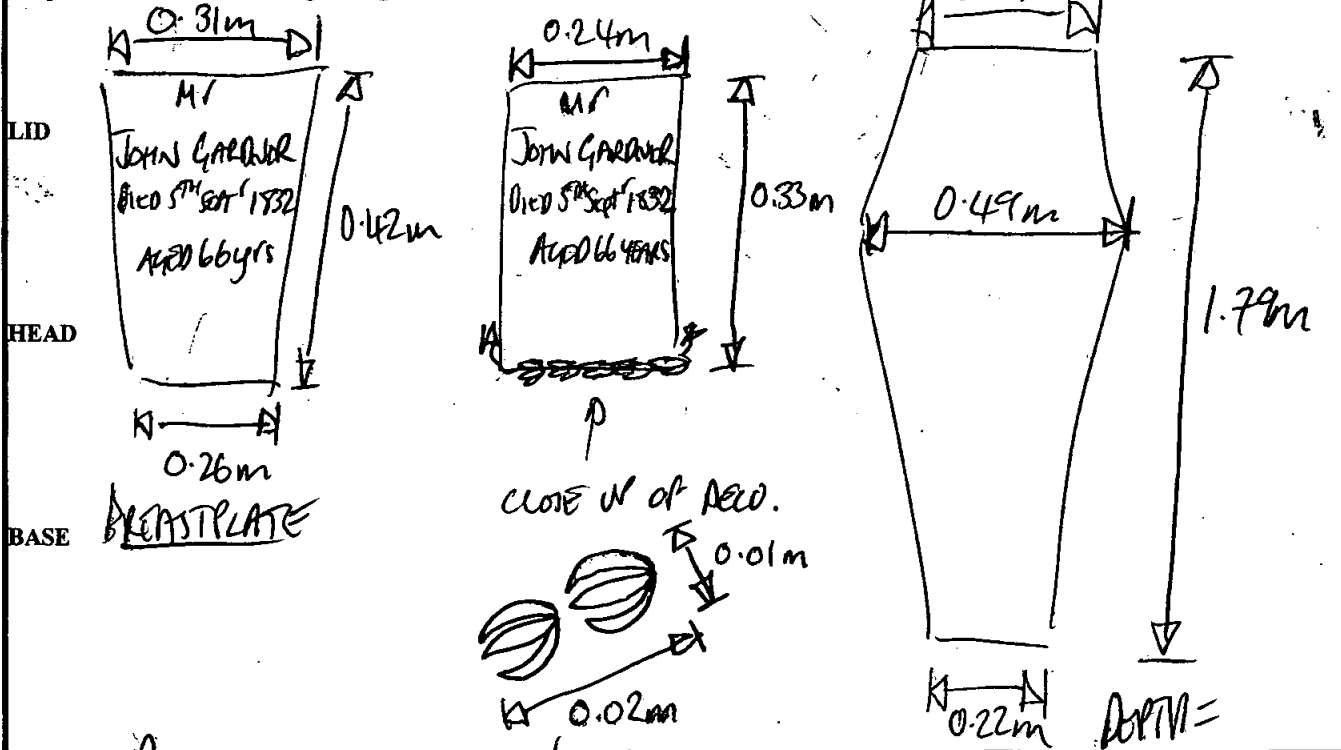 0.31m
Mr
JOHN GARDNOR
DIED 5TH SEPTr 1832
AGED 66 yrs
0.42m
0.26m
BREASTPLATE
0.24m
Mr
JOHN GARDNOR
DIED 5TH Septr 1832
AGED 66 YEARS
0.33m
CLOSE UP OF DECO.
0.01m
0.02m
0.49m
1.79m
0.22m
DEPTH=
LID
HEAD
BASE